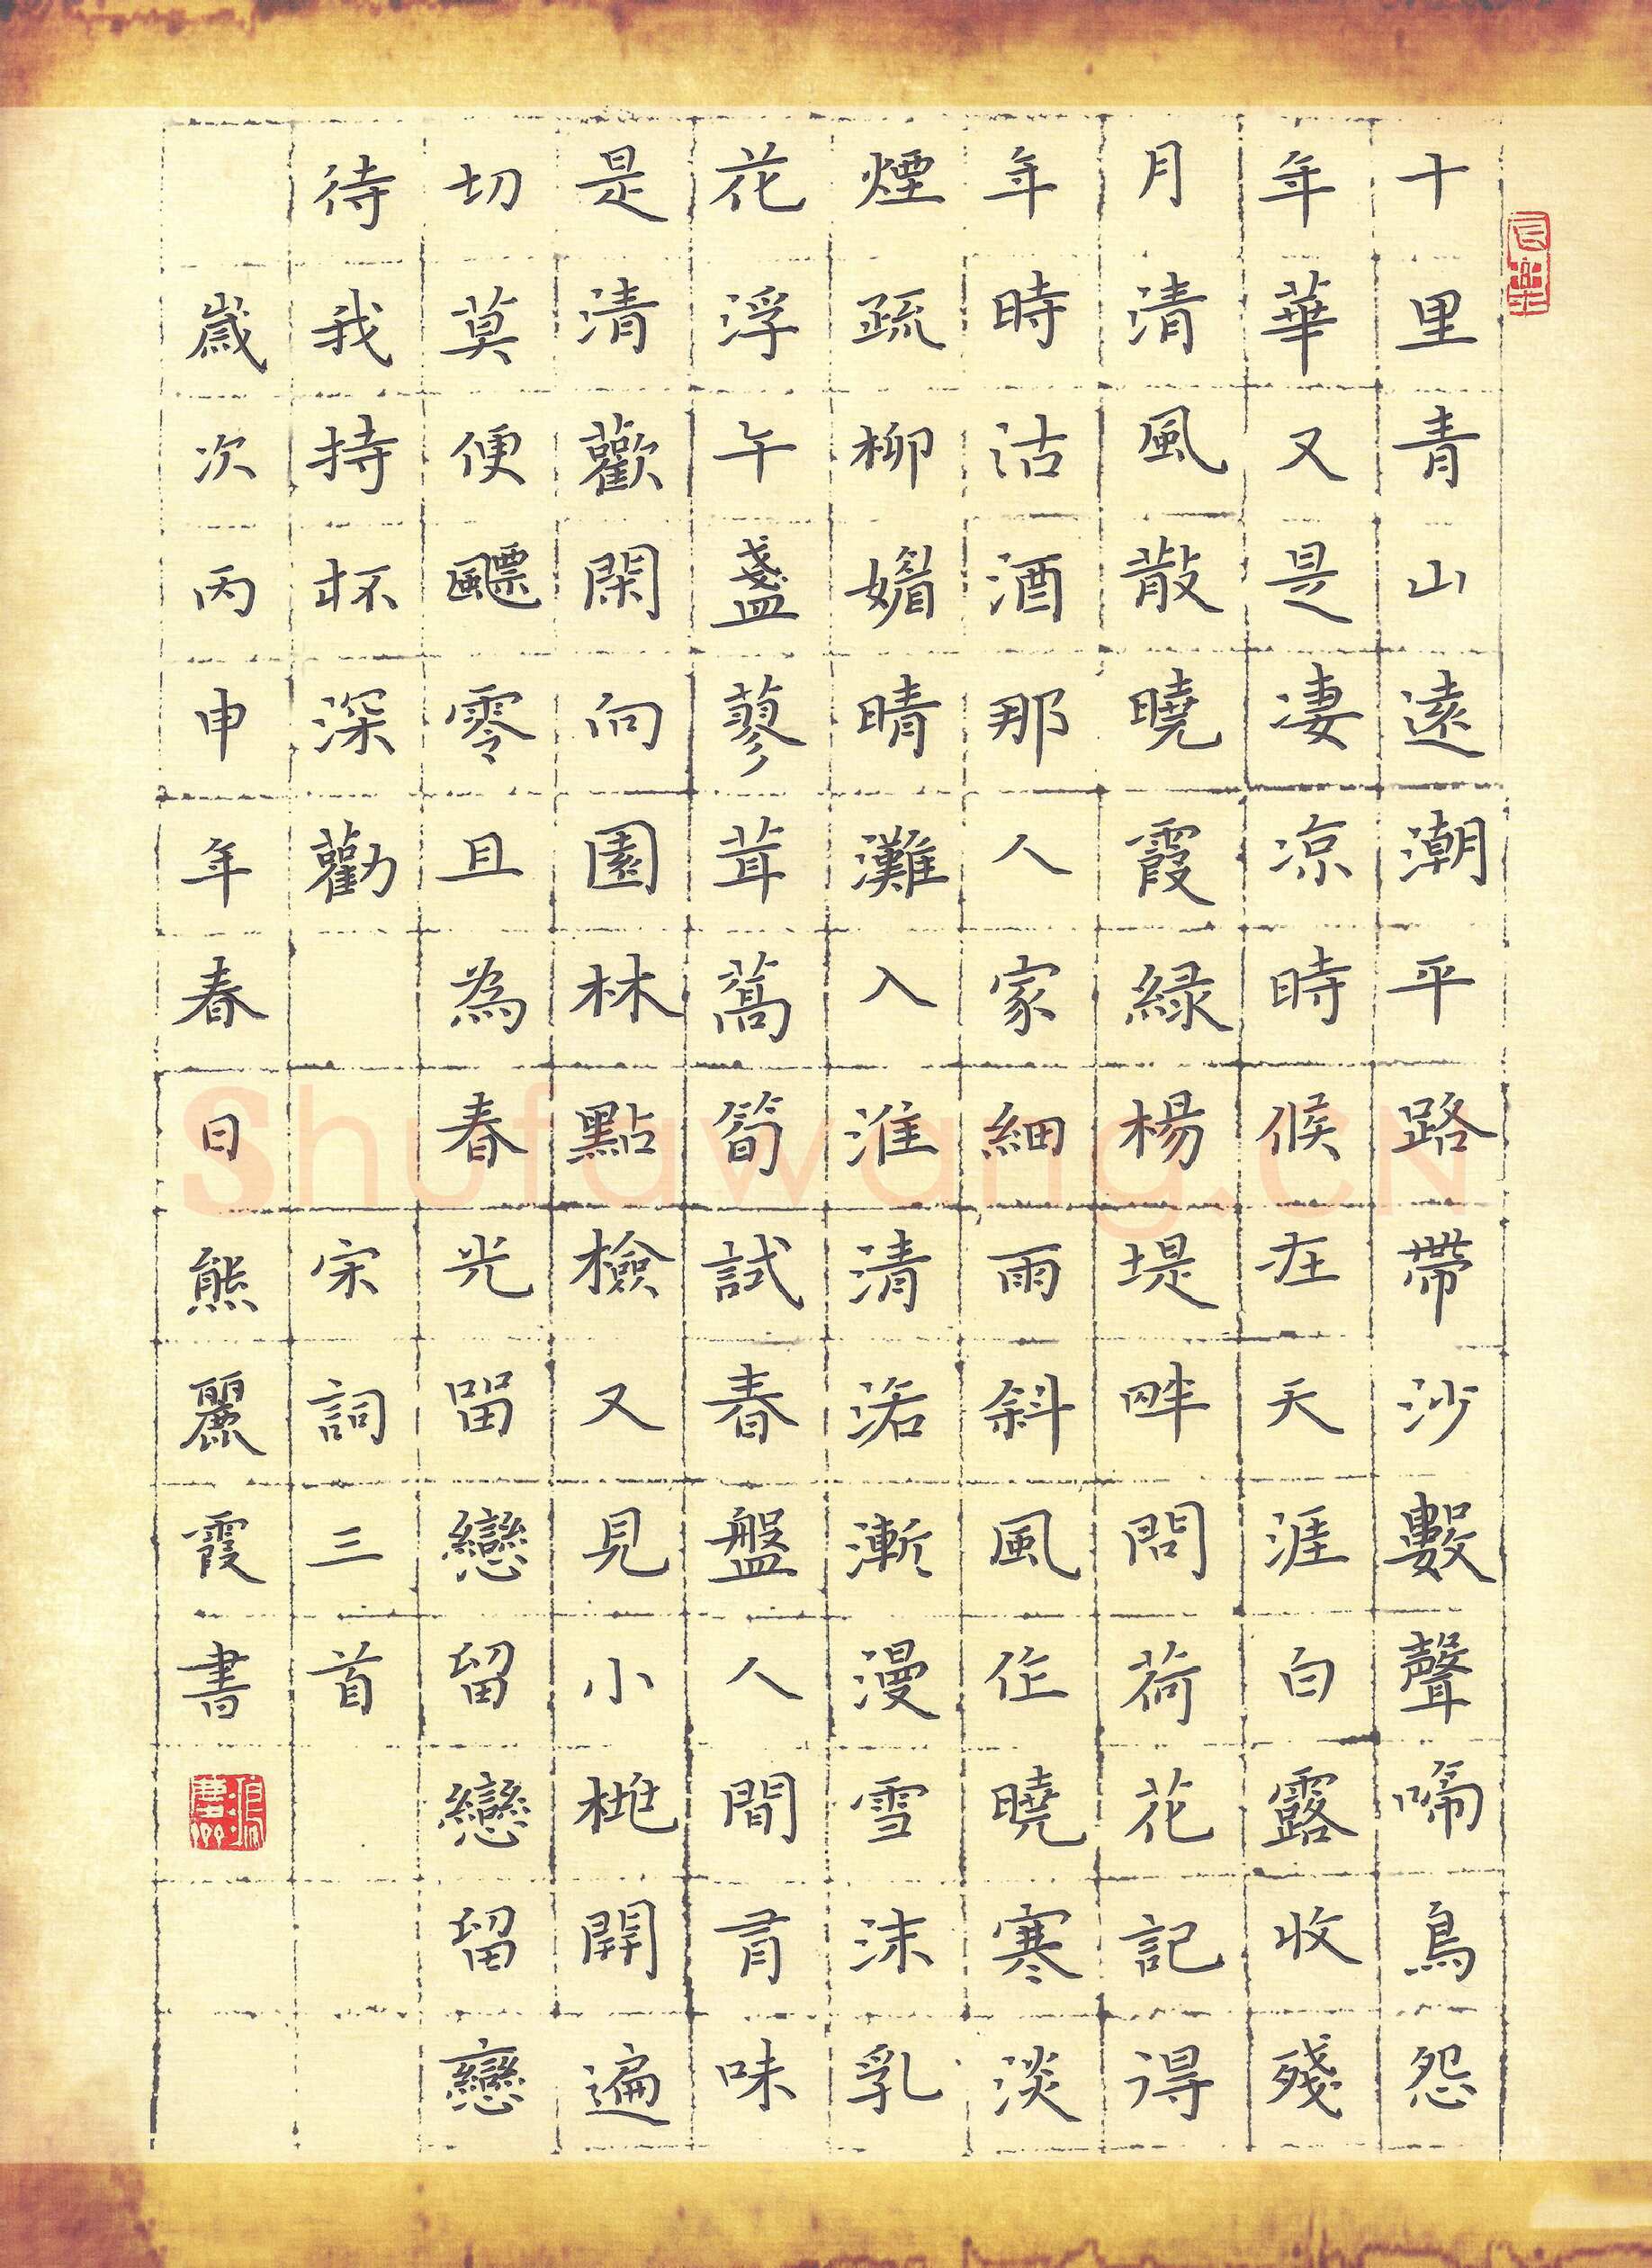 十里青山遠潮平路帶沙數聲啼鳥怨
年華又是淒凉時候在天涯白露收殘
月清風散曉霞綠楊堤畔問荷花記得
年時沽酒那人家細雨斜風作曉寒淡
煙疏柳媚晴灘入淮清洛漸漫雪沫乳
花浮午盞蓼茸蒿筍試春盤人間有味
是清歡閑向園林點檢又見小桃開遍
切莫便飄零且為春光留戀留戀留戀
待我持杯深勸 宋詞三首
歲次丙申年春日熊麗霞書
Shufawang.CN